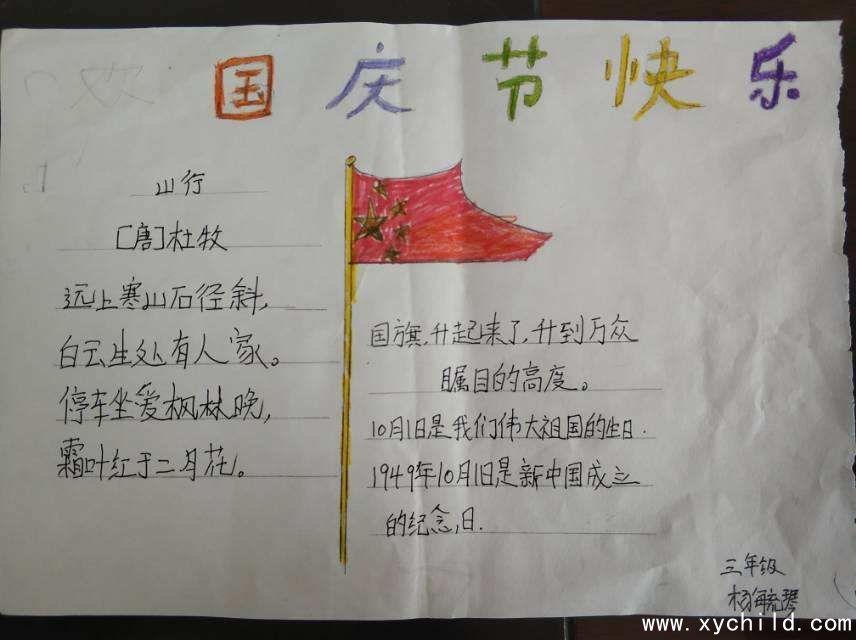 欢
国庆节快乐
山行
[唐]杜牧
远上寒山石径斜,
白云生处有人家。
停车坐爱枫林晚,
霜叶红于二月花。
国旗,升起来了,升到万众
瞩目的高度。
10月1日是我们伟大祖国的生日.
1949年10月1日是新中国成立
的纪念,日.
三年级
www.xychild.com